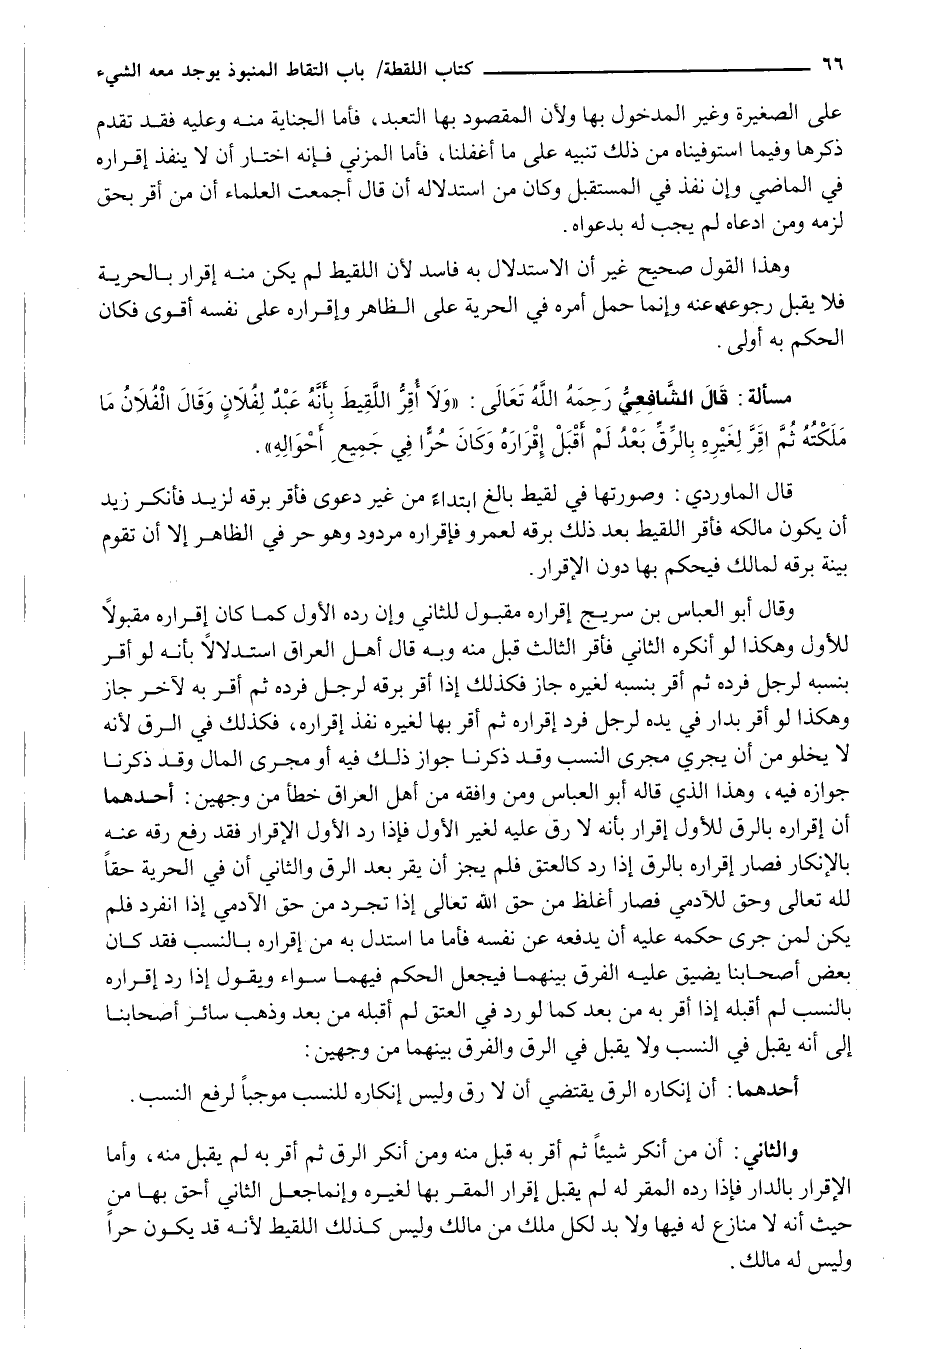 ٦٦ كتاب اللقطة/ باب التقاط المنبوذ يوجد معه الشيء
على الصغيرة وغير المدخول بها ولأن المقصود بها التعبد، فأما الجناية منه وعليه فقد تقدم
ذكرها وفيما استوفيناه من ذلك تنبيه على ما أغفلنا، فأما المزني فإنه اختار أن لا ينفذ إقراره
في الماضي وإن نفذ في المستقبل وكان من استدلاله أن قال أجمعت العلماء أن من أقر بحق
لزمه ومن ادعاه لم يجب له بدعواه.
وهذا القول صحيح غير أن الاستدلال به فاسد لأن اللقيط لم يكن منه إقرار بالحرية
فلا يقبل رجوعه عنه وإنما حمل أمره في الحرية على الظاهر وإقراره على نفسه أقوى فكان
الحكم به أولى.
مسألة: قَالَ الشَّافِعِيُّ رَحِمَهُ اللَّهُ تَعَالَى: «وَلَا أُقِرُّ اللَّقِيطَ بِأَنَّهُ عَبْدٌ لِفُلَانٍ وَقَالَ الْفُلَانُ مَا
مَلَكْتُهُ ثُمَّ اقِرَّ لِغَيْرِهِ بِالرِّقِّ بَعْدُ لَمْ أَقْبَلْ إِقْرَارَهُ وَكَانَ حُرًّا فِي جَمِيعِ أَحْوَالِهِ».
قال الماوردي: وصورتها في لقيط بالغ ابتداءً من غير دعوى فأقر برقه لزيد فأنكر زيد
أن يكون مالكه فأقر اللقيط بعد ذلك برقه لعمرو فإقراره مردود وهو حر في الظاهر إلا أن تقوم
بينة برقه لمالك فيحكم بها دون الإقرار.
وقال أبو العباس بن سريج إقراره مقبول للثاني وإن رده الأول كما كان إقراره مقبولاً
للأول وهكذا لو أنكره الثاني فأقر الثالث قبل منه وبه قال أهل العراق استدلالاً بأنه لو أقر
بنسبه لرجل فرده ثم أقر بنسبه لغيره جاز فكذلك إذا أقر برقه لرجل فرده ثم أقر به لآخر جاز
وهكذا لو أقر بدار في يده لرجل فرد إقراره ثم أقر بها لغيره نفذ إقراره، فكذلك في الرق لأنه
لا يخلو من أن يجري مجرى النسب وقد ذكرنا جواز ذلك فيه أو مجرى المال وقد ذكرنا
جوازه فيه، وهذا الذي قاله أبو العباس ومن وافقه من أهل العراق خطأ من وجهين: أحدهما
أن إقراره بالرق للأول إقرار بأنه لا رق عليه لغير الأول فإذا رد الأول الإقرار فقد رفع رقه عنه
بالإنكار فصار إقراره بالرق إذا رد كالعتق فلم يجز أن يقر بعد الرق والثاني أن في الحرية حقاً
لله تعالى وحق للآدمي فصار أغلظ من حق الله تعالى إذا تجرد من حق الآدمي إذا انفرد فلم
يكن لمن جرى حكمه عليه أن يدفعه عن نفسه فأما ما استدل به من إقراره بالنسب فقد كان
بعض أصحابنا يضيق عليه الفرق بينهما فيجعل الحكم فيهما سواء ويقول إذا رد إقراره
بالنسب لم أقبله إذا أقر به من بعد كما لو رد في العتق لم أقبله من بعد وذهب سائر أصحابنا
إلى أنه يقبل في النسب ولا يقبل في الرق والفرق بينهما من وجهين:
أحدهما: أن إنكاره الرق يقتضي أن لا رق وليس إنكاره للنسب موجباً لرفع النسب.
والثاني: أن من أنكر شيئاً ثم أقر به قبل منه ومن أنكر الرق ثم أقر به لم يقبل منه، وأما
الإقرار بالدار فإذا رده المقر له لم يقبل إقرار المقر بها لغيره وإنماجعل الثاني أحق بها من
حيث أنه لا منازع له فيها ولا بد لكل ملك من مالك وليس كذلك اللقيط لأنه قد يكون حراً
وليس له مالك.